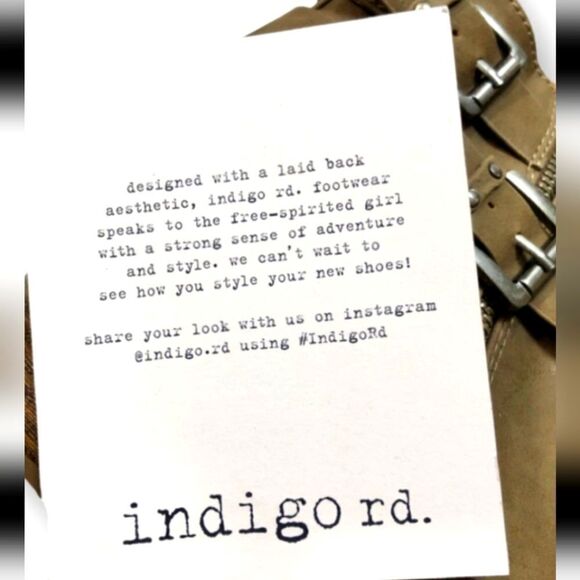 designed with a laid back
aesthetic, indigo rd. footwear
speaks to the free-spirited girl
with a strong sense of adventure
and style. we can't wait to
see how you style your new shoes!
share your look with us on instagram
@indigo.rd using #IndigoRd
indigo rd.